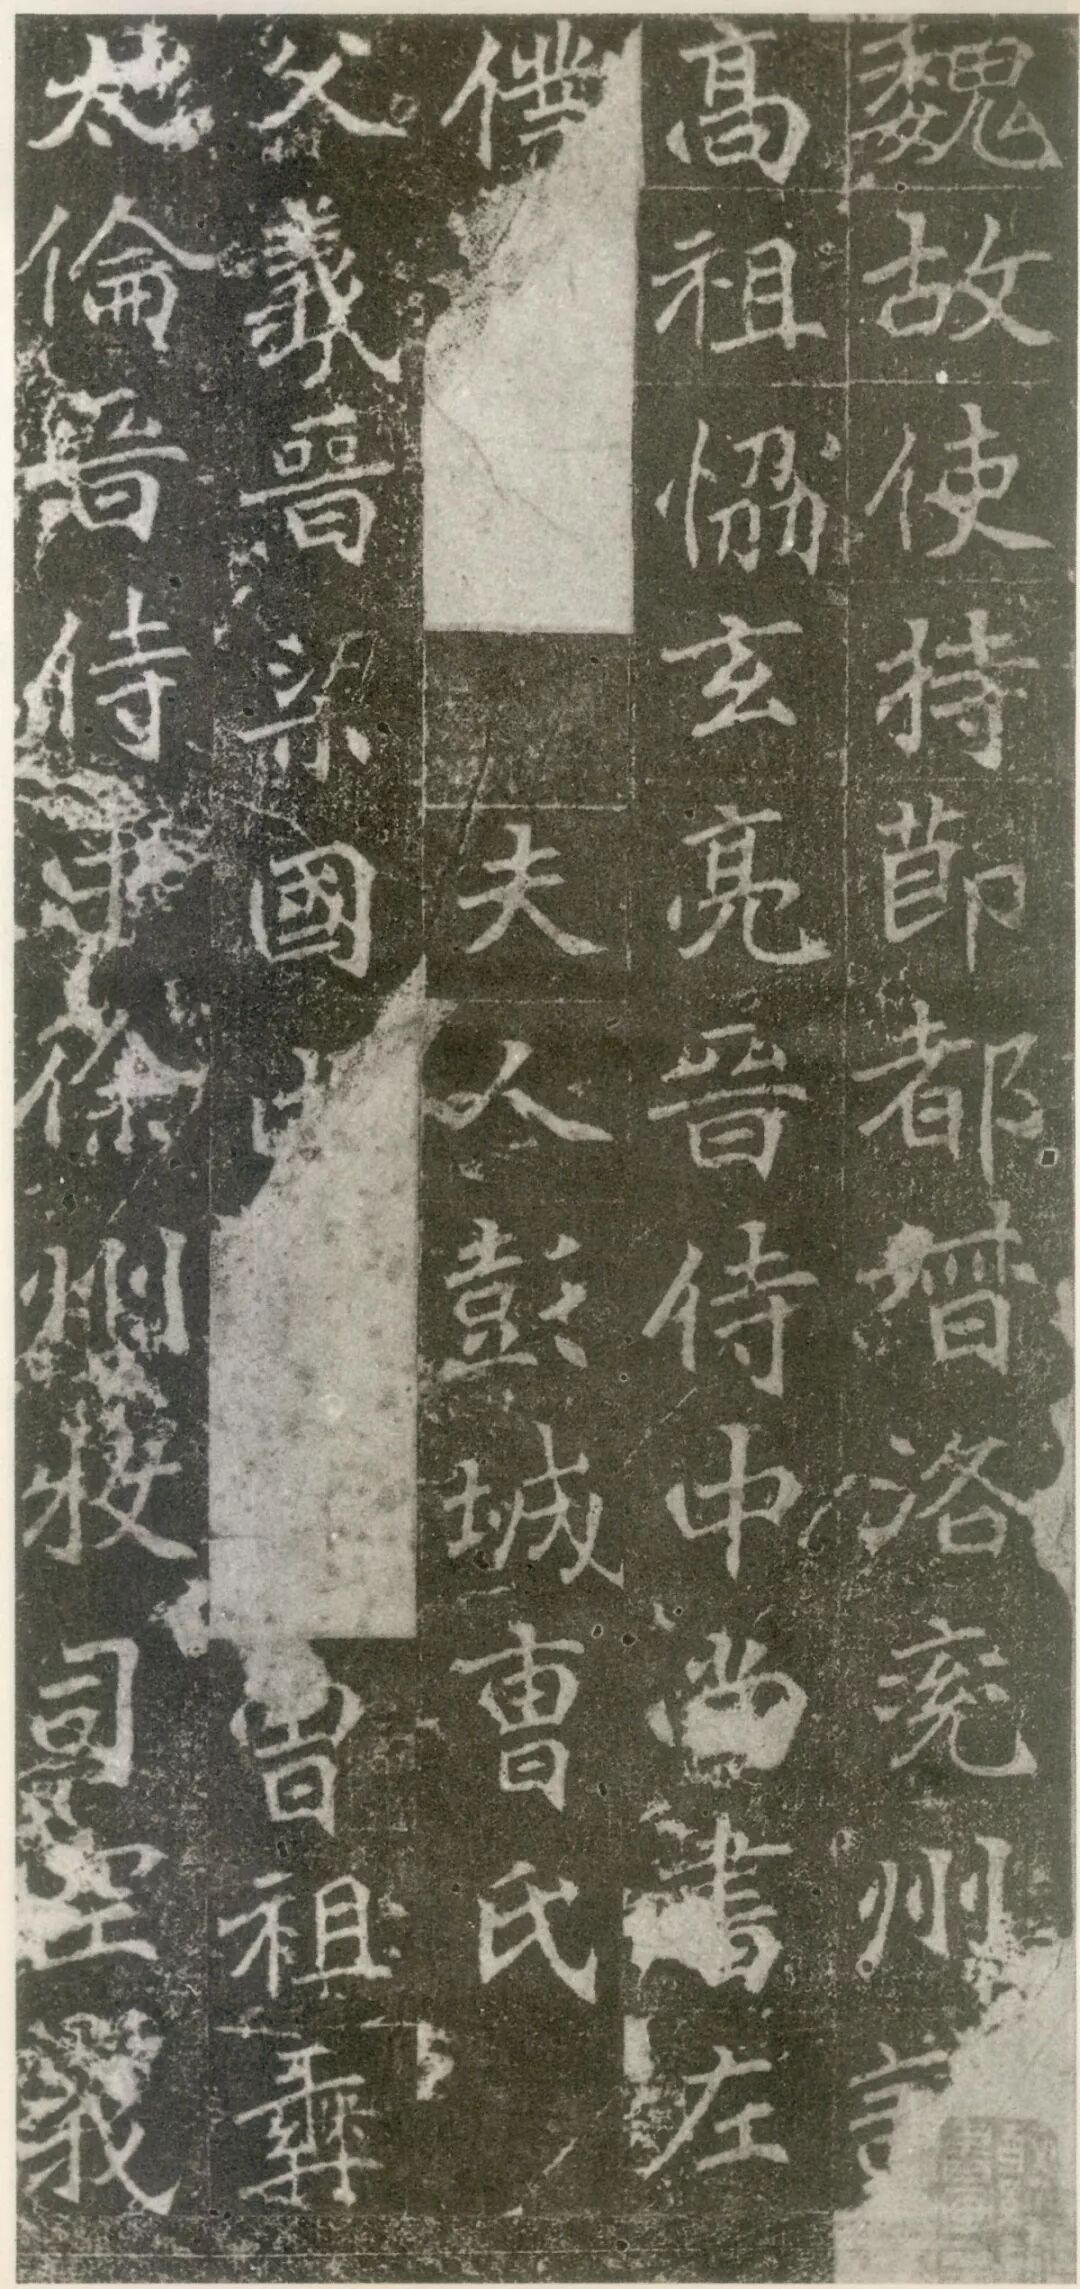 魏故使持節都督洛兖州
高祖恊玄亮晉侍中尚書左
僕夫人彭城曹氏
父義晉梁國曾祖彝
太倫晉侍中徐州牧司空義